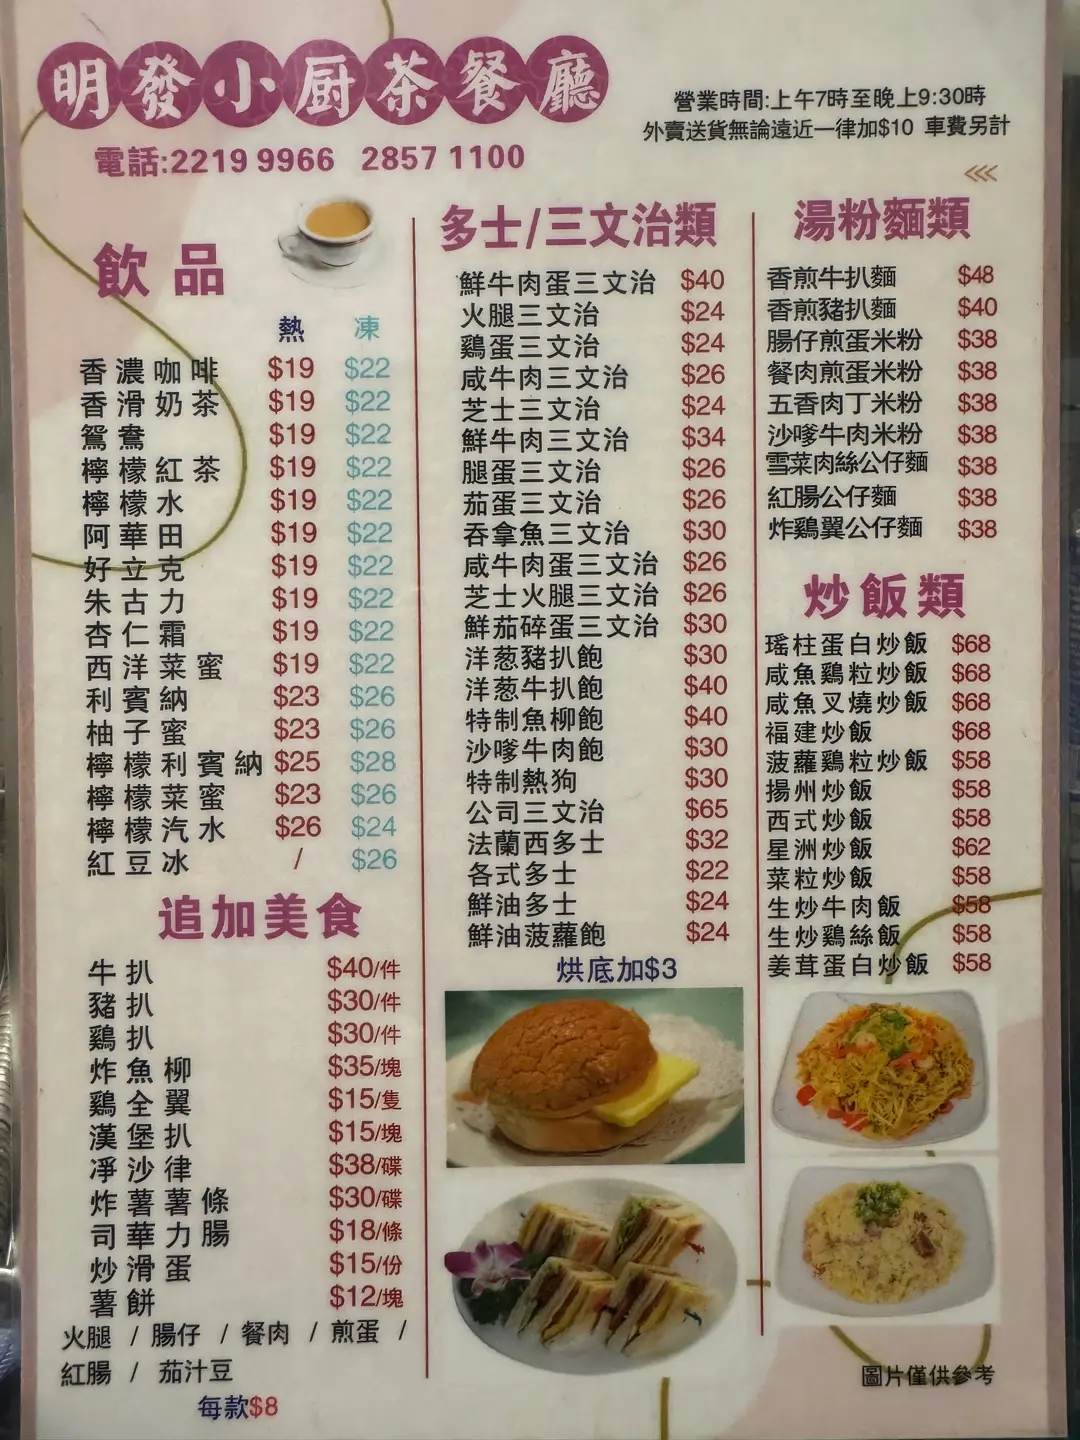 明發小厨茶餐廳
電話:2219 9966 2857 1100
營業時間:上午7時至晚上9:30時
外賣送貨無論遠近一律加$10 車費另計
<<<
飲品
熱 凍
香濃咖啡 $19 $22
香滑奶茶 $19 $22
鴛鴦 $19 $22
檸檬紅茶 $19 $22
檸檬水 $19 $22
阿華田 $19 $22
好立克 $19 $22
朱古力 $19 $22
杏仁霜 $19 $22
西洋菜蜜 $19 $22
利賓納 $23 $26
柚子蜜 $23 $26
檸檬利賓納 $25 $28
檸檬菜蜜 $23 $26
檸檬汽水 $26 $24
紅豆冰 / $26
追加美食
牛扒 $40/件
豬扒 $30/件
鷄扒 $30/件
炸魚柳 $35/塊
鷄全翼 $15/隻
漢堡扒 $15/塊
凈沙律 $38/碟
炸薯薯條 $30/碟
司華力腸 $18/條
炒滑蛋 $15/份
薯餅 $12/塊
火腿 / 腸仔 / 餐肉 / 煎蛋 /
紅腸 / 茄汁豆
每款$8
多士/三文治類
鮮牛肉蛋三文治 $40
火腿三文治 $24
鷄蛋三文治 $24
咸牛肉三文治 $26
芝士三文治 $24
鮮牛肉三文治 $34
腿蛋三文治 $26
茄蛋三文治 $26
吞拿魚三文治 $30
咸牛肉蛋三文治 $26
芝士火腿三文治 $26
鮮茄碎蛋三文治 $30
洋葱豬扒飽 $30
洋葱牛扒飽 $40
特制魚柳飽 $40
沙嗲牛肉飽 $30
特制熱狗 $30
公司三文治 $65
法蘭西多士 $32
各式多士 $22
鮮油多士 $24
鮮油菠蘿飽 $24
烘底加$3
湯粉麵類
香煎牛扒麵 $48
香煎豬扒麵 $40
腸仔煎蛋米粉 $38
餐肉煎蛋米粉 $38
五香肉丁米粉 $38
沙嗲牛肉米粉 $38
雪菜肉絲公仔麵 $38
紅腸公仔麵 $38
炸鷄翼公仔麵 $38
炒飯類
瑤柱蛋白炒飯 $68
咸魚鷄粒炒飯 $68
咸魚叉燒炒飯 $68
福建炒飯 $68
菠蘿鷄粒炒飯 $58
揚州炒飯 $58
西式炒飯 $58
星洲炒飯 $62
菜粒炒飯 $58
生炒牛肉飯 $58
生炒鷄絲飯 $58
姜茸蛋白炒飯 $58
圖片僅供參考